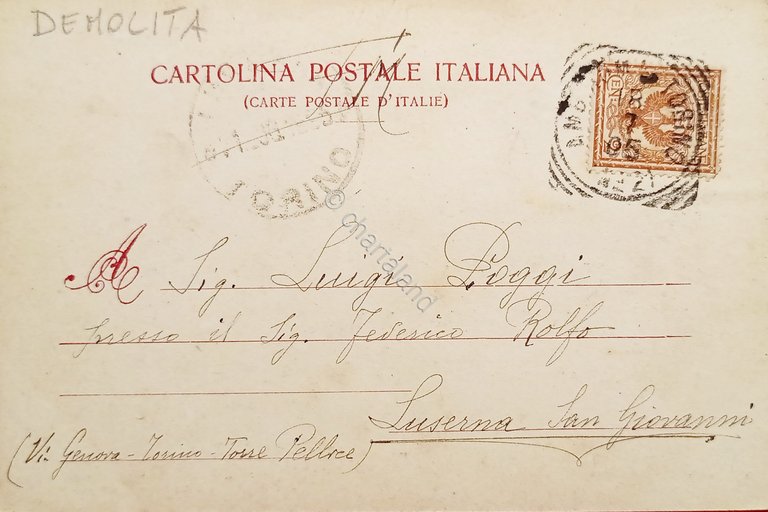 DEMOLITA
CARTOLINA POSTALE ITALIANA
(CARTE POSTALE D'ITALIE)
TORINO
18
7
95
TORINO
© chartaland
A Sig. Luigi Poggi
presso il Sig. Federico Rolfo
Luserna San Giovanni
(Vi: Genova - Torino - Torre Pellice)